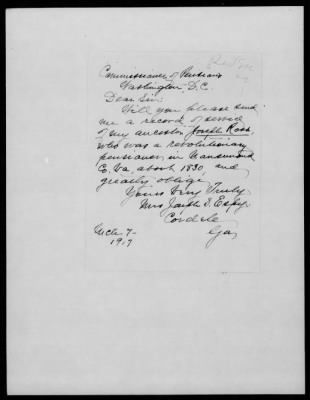 Commissioner of Pensions
Washington D.C.
Dear Sir:
Will you please send
me a record of service
of my ancestor Joseph Ross,
who was a revolutionary
pensioner, in Nansemond
C. Va, about 1830, and
greatly oblige,
Yours Very Truly
Mrs J. Espy
Cordele
Ga,
Mch. 7-
1917